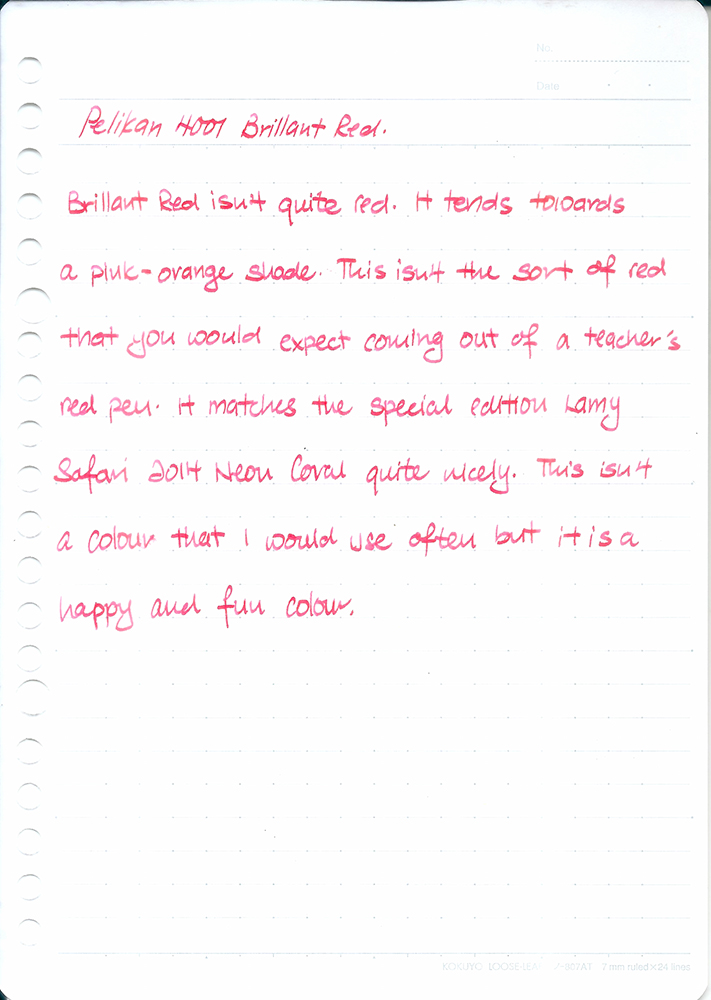 No.
Date
Pelikan 4001 Brillant Red.
Brillant Red isn't quite red. It tends towards
a pink-orange shade. This isn't the sort of red
that you would expect coming out of a teacher's
red pen. It matches the special edition Lamy
Safari 2014 Neon Coral quite nicely. This isn't
a colour that I would use often but it is a
happy and fun colour.
KOKUYO LOOSE-LEAF 7 mm ruled×24 lines